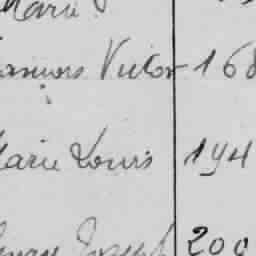 Marie
Victor 168
Marie Louis 194
Joseph 200